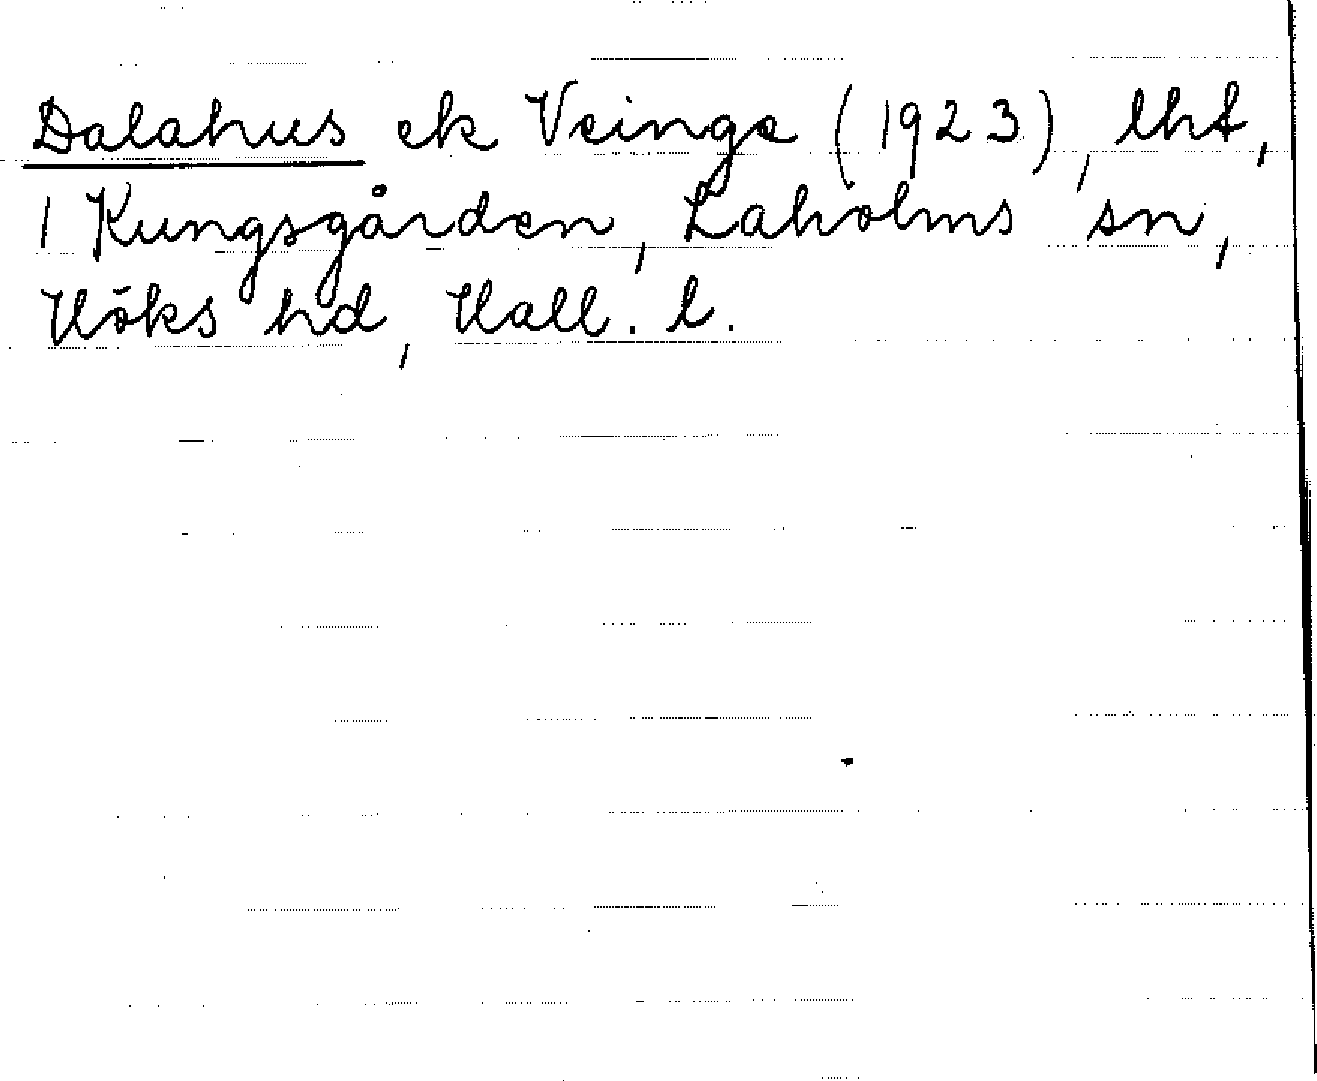 Dalahus ek Veinge (1923), lht,
1 Kungsgården, Laholms sn,
Höks hd, Hall. l.